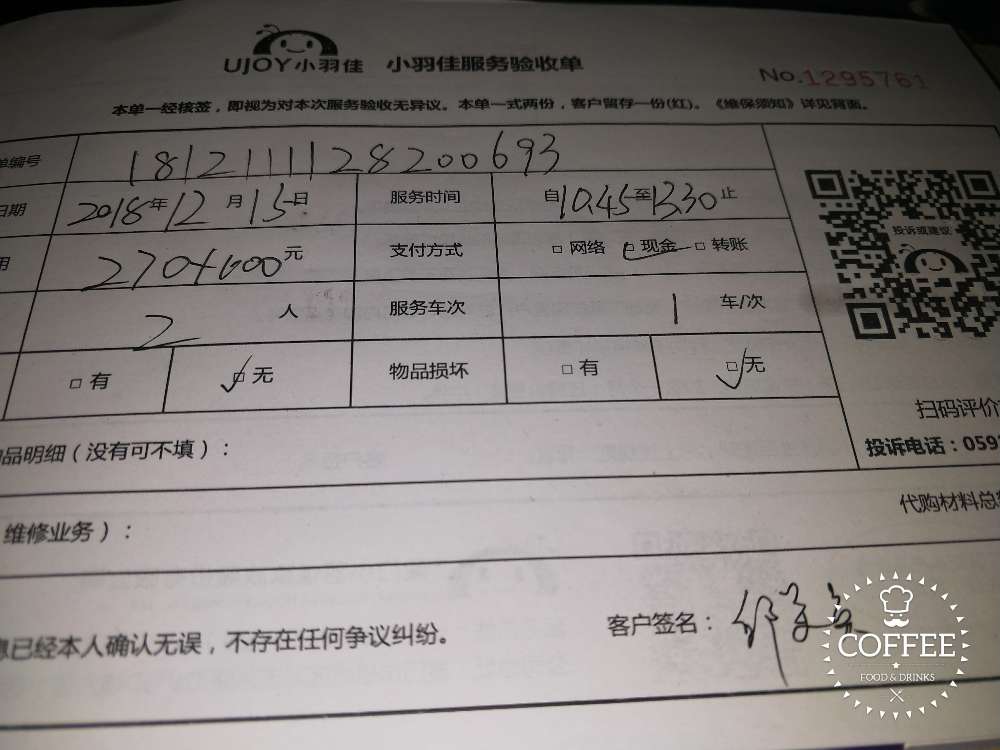 UJOY小羽佳 小羽佳服务验收单
No.1295761
本单一经核签，即视为对本次服务验收无异议。本单一式两份，客户留存一份(红)。《维保须知》详见背面。
单编号 181211128200693
日期 2018年12月15日 服务时间 自10.45至13.30止
用 270+600元 支付方式 □网络 □现金 □转账
2 人 服务车次 1 车/次
□有 □无 物品损坏 □有 □无
投诉或建议
扫码评价
品明细（没有可不填）：
投诉电话：059
代购材料总
维修业务）：
息已经本人确认无误，不存在任何争议纠纷。
客户签名：
COFFEE
FOOD & DRINKS